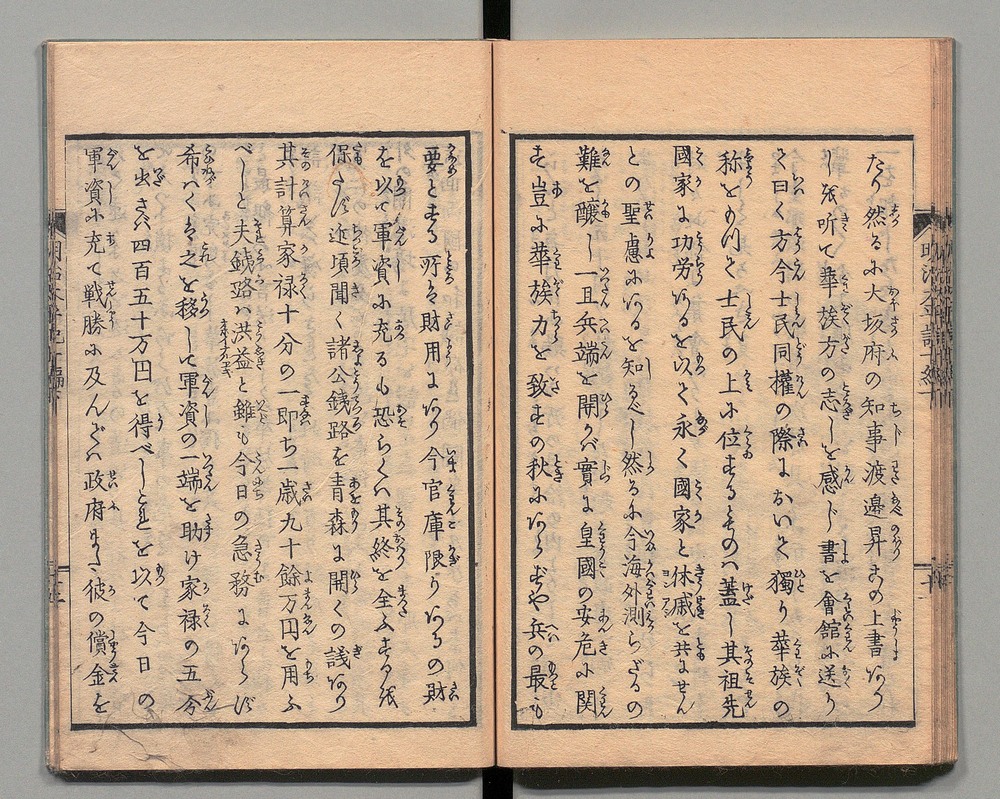 たり然るに大坂府の知事渡邉昇氏の上書あり
し夫れ听て華族方の志しを感じ書を會館に送り
て曰く方今士民同權の際におひて獨り華族の
称をのけて士民の上に位するものハ蓋し其祖先
國家に功労あるを以て永く國家と休戚を共にせん
との聖慮にあるを知るべし然るに今海外測らざるの
難を醸し一旦兵端を開かバ實に皇國の安危に関
す豈に華族力を致すの秋にあらずや兵の最も
要とする所は財用にあり今官庫限りあるの財
を以て軍資に充るも恐らくハ其終を全ふするを
保たず近頃聞く諸公銕路を青森に開くの議あり
其計算家禄十分の一即ち一歳九十餘万円を用ふ
べしと夫銕路ハ洪益と雖も今日の急務にあらず
希ハくは之を移して軍資の一端を助け家禄の五分
を出さバ四百五十万円を得べしとれを以て今日の
軍資に充て戦勝に及んでハ政府また彼の償金を